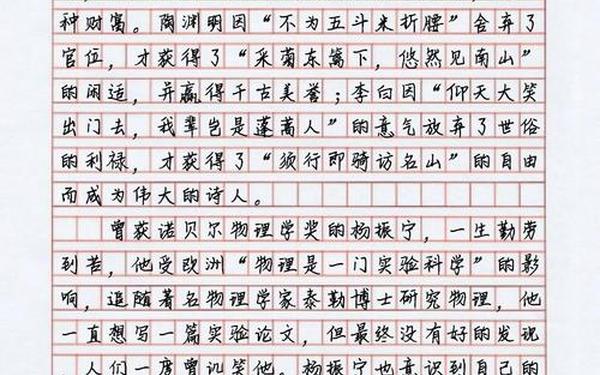 种财富。陶渊明因“不为五斗米折腰”舍弃了
官位，才获得了“采菊东篱下，悠然见南山”
的闲适，并赢得千古美誉；李白因“仰天大笑
出门去，我辈岂是蓬蒿人”的意气放弃了世俗
的利禄，才获得了“须行即骑访名山”的自由
而成为伟大的诗人。
曾获诺贝尔物理学奖的杨振宁，一生勤劳
刻苦，他受欧洲“物理是一门实验科学”的影
响，追随著名物理学家泰勒博士研究物理，他
一直想写一篇实验论文，但最终没有好的发现
，人们一度曾讥笑他。杨振宁也意识到自己的